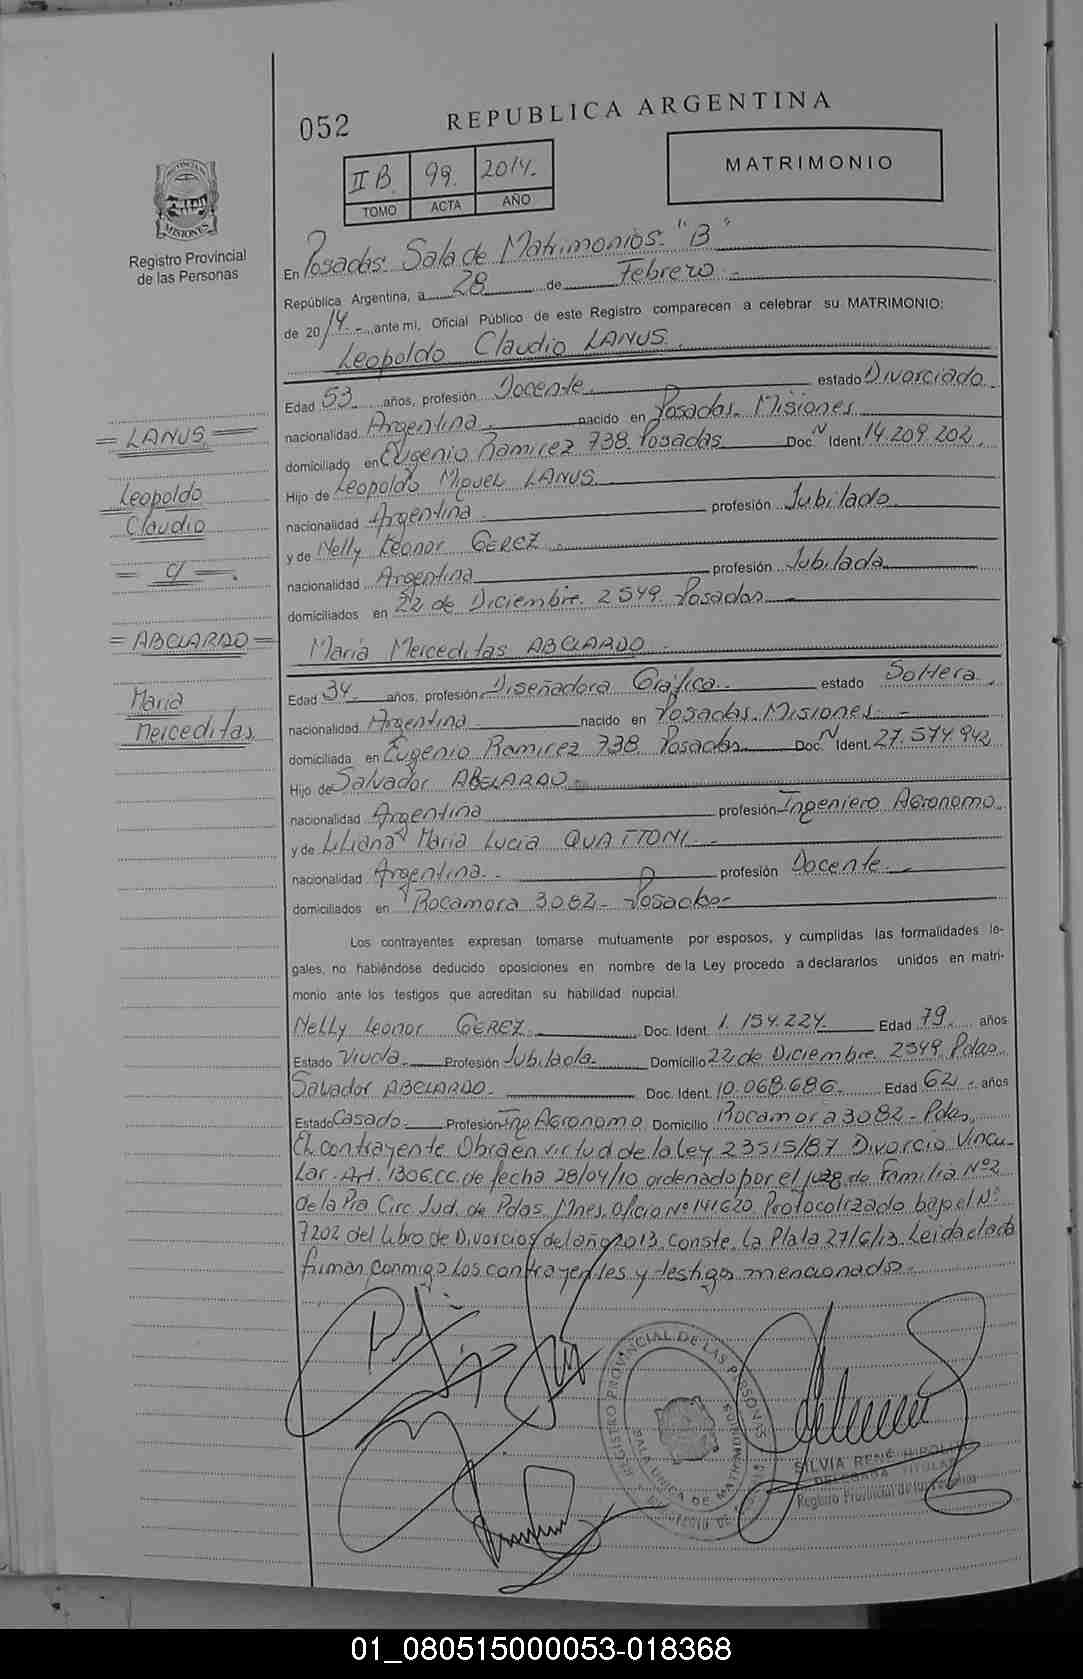 052
REPUBLICA ARGENTINA
MATRIMONIO
II B. 99. 2014.
TOMO ACTA AÑO
MISIONES
Registro Provincial
de las Personas
En Posadas. Sala de Matrimonios. "B"
República Argentina, a 28 de Febrero.-
de 2014.- ante mi, Oficial Público de este Registro comparecen a celebrar su MATRIMONIO:
Leopoldo Claudio LANUS.
Edad 53 años, profesión Docente. estado Divorciado
nacionalidad Argentina. nacido en Posadas. Misiones
domiciliado en Eugenio Ramirez 738. Posadas Doc. N Ident. 14.209.202.
Hijo de Leopoldo Miguel LANUS
nacionalidad Argentina. profesión Jubilado
y de Nelly Leonor GEREZ.
nacionalidad Argentina profesión Jubilada
domiciliados en 22 de Diciembre. 2549. Posadas
= LANUS =
Leopoldo
Claudio
= c/ =.
= ABELARDO =
Maria
Merceditas
Maria Merceditas ABELARDO.
Edad 34. años, profesión Diseñadora Gráfica. estado Soltera.
nacionalidad Argentina. nacido en Posadas. Misiones.-
domiciliada en Eugenio Ramirez 738. Posadas Doc. N Ident. 27.574.942
Hijo de Salvador ABELARDO
nacionalidad Argentina profesión Ingeniero Agronomo
y de Liliana Maria Lucia QUATTONI.-
nacionalidad Argentina.- profesión Docente.-
domiciliados en Rocamora 3082- Posadas-
Los contrayentes expresan tomarse mutuamente por esposos, y cumplidas las formalidades le-
gales, no habiéndose deducido oposiciones en nombre de la Ley procedo a declararlos unidos en matri-
monio ante los testigos que acreditan su habilidad nupcial.
Nelly Leonor GEREZ. Doc. Ident. 1.154.224. Edad 79. años
Estado Viuda. Profesión Jubilada. Domicilio 22 de Diciembre. 2549. Pdas.
Salvador ABELARDO. Doc. Ident. 10.068.686. Edad 62.- años
Estado Casado. Profesión Ing Agronomo Domicilio Rocamora 3082- Pdas.
El contrayente Obra en virtud de la Ley 23515/87 Divorcio Vincu-
lar. Art. 1306.CC. de fecha 28/04/10 ordenado por el juzg. de Familia Nº2
de la Pra Circ. Jud. de Pdas. Mnes. Oficio Nº 141620. Protocolizado bajo el Nº
7202 del libro de Divorcios del año 2013. Conste. La Plata 27/6/13. Leida el acta
firman conmigo los contrayentes y testigos mencionados.-
REGISTRO PROVINCIAL DE LAS PERSONAS
SALA UNICA DE MATRIMONIOS
SILVIA RENÉ HIPOLITO
DELEGADA TITULAR
Registro Provincial de las Personas
01_080515000053-018368